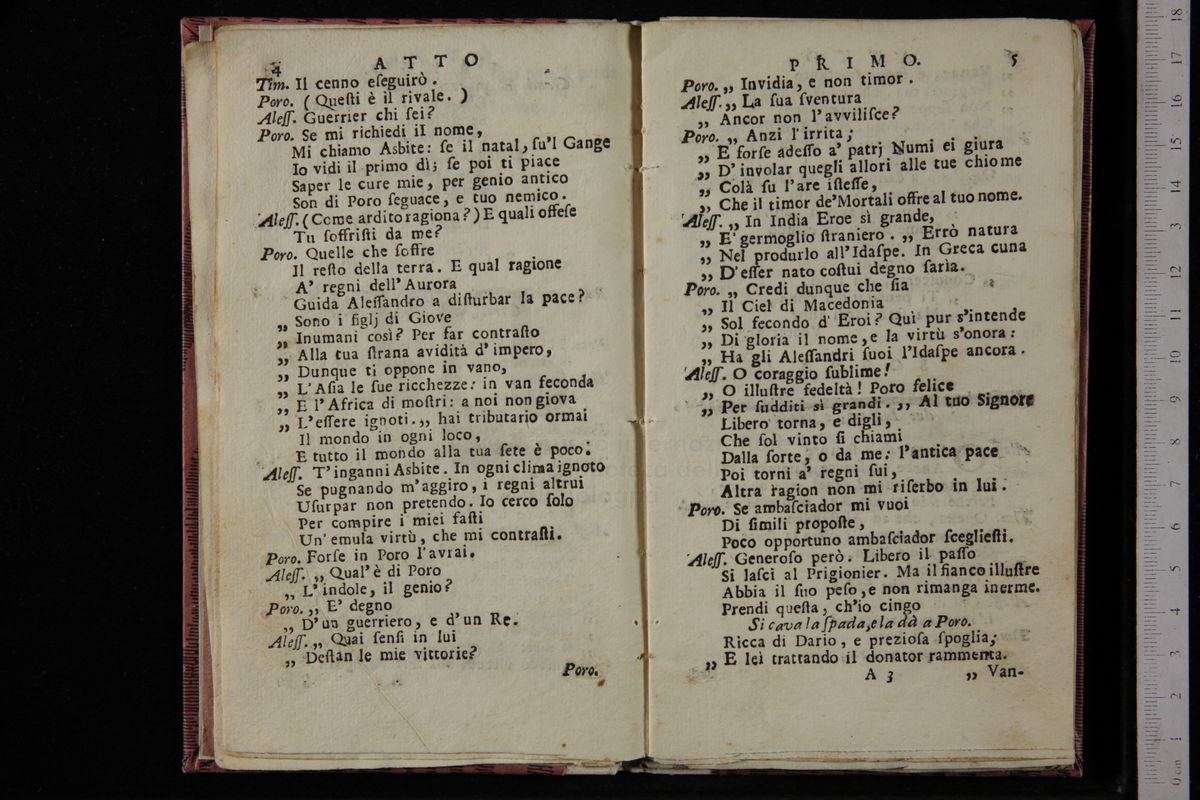 4 ATTO
Tim. Il cenno eſeguirò.
Poro. (Queſti è il rivale.)
Aleſſ. Guerrier chi ſei?
Poro. Se mi richiedi il nome,
Mi chiamo Asbite: ſe il natal, ſu'l Gange
Io vidi il primo dì; ſe poi ti piace
Saper le cure mie, per genio antico
Son di Poro ſeguace, e tuo nemico.
Aleſſ. (Come ardito ragiona?) E quali offeſe
Tu ſoffriſti da me?
Poro. Quelle che ſoffre
Il reſto della terra. E qual ragione
A' regni dell'Aurora
Guida Aleſſandro a diſturbar la pace?
„ Sono i figlj di Giove
„ Inumani così? Per far contraſto
„ Alla tua ſtrana avidità d'impero,
„ Dunque ti oppone in vano,
„ L'Aſia le ſue ricchezze: in van feconda
„ E l'Africa di moſtri: a noi non giova
„ L'eſſere ignoti. „ hai tributario ormai
Il mondo in ogni loco,
E tutto il mondo alla tua ſete è poco.
Aleſſ. T'inganni Asbite. In ogni clima ignoto
Se pugnando m'aggiro, i regni altrui
Uſurpar non pretendo. Io cerco ſolo
Per compire i miei faſti
Un'emula virtù, che mi contraſti.
Poro. Forſe in Poro l'avrai.
Aleſſ. „ Qual'è di Poro
„ L'indole, il genio?
Poro. „ E' degno
„ D'un guerriero, e d'un Re.
Aleſſ. „ Quai ſenſi in lui
„ Deſtan le mie vittorie?
Poro.
PRIMO. 5
Poro. „ Invidia, e non timor.
Aleſſ. „ La ſua ſventura
„ Ancor non l'avviliſce?
Poro. „ Anzi l'irrita;
„ E forſe adeſſo a' patrj Numi ei giura
„ D'involar quegli allori alle tue chiome
„ Colà ſu l'are iſteſſe,
„ Che il timor de'Mortali offre al tuo nome.
Aleſſ. „ In India Eroe sì grande,
„ E' germoglio ſtraniero. „ Errò natura
„ Nel produrlo all'Idaſpe. In Greca cuna
„ D'eſſer nato coſtui degno ſarìa.
Poro. „ Credi dunque che ſia
„ Il Ciel di Macedonia
„ Sol fecondo d'Eroi? Qui pur s'intende
„ Di gloria il nome, e la virtù s'onora:
„ Ha gli Aleſſandri ſuoi l'Idaſpe ancora.
Aleſſ. O coraggio ſublime!
„ O illuſtre fedeltà! Poro felice
„ Per ſudditi sì grandi. „ Al tuo Signore
Libero torna, e digli,
Che ſol vinto ſi chiami
Dalla ſorte, o da me: l'antica pace
Poi torni a' regni ſui,
Altra ragion non mi riſerbo in lui.
Poro. Se ambaſciador mi vuoi
Di ſimili propoſte,
Poco opportuno ambaſciador ſceglieſti.
Aleſſ. Generoſo però. Libero il paſſo
Si laſci al Prigionier. Ma il fianco illuſtre
Abbia il ſuo peſo, e non rimanga inerme.
Prendi queſta, ch'io cingo
Si cava la ſpada, e la dà a Poro.
Ricca di Dario, e prezioſa ſpoglia;
„ E lei trattando il donator rammenta.
A 3 „ Van-